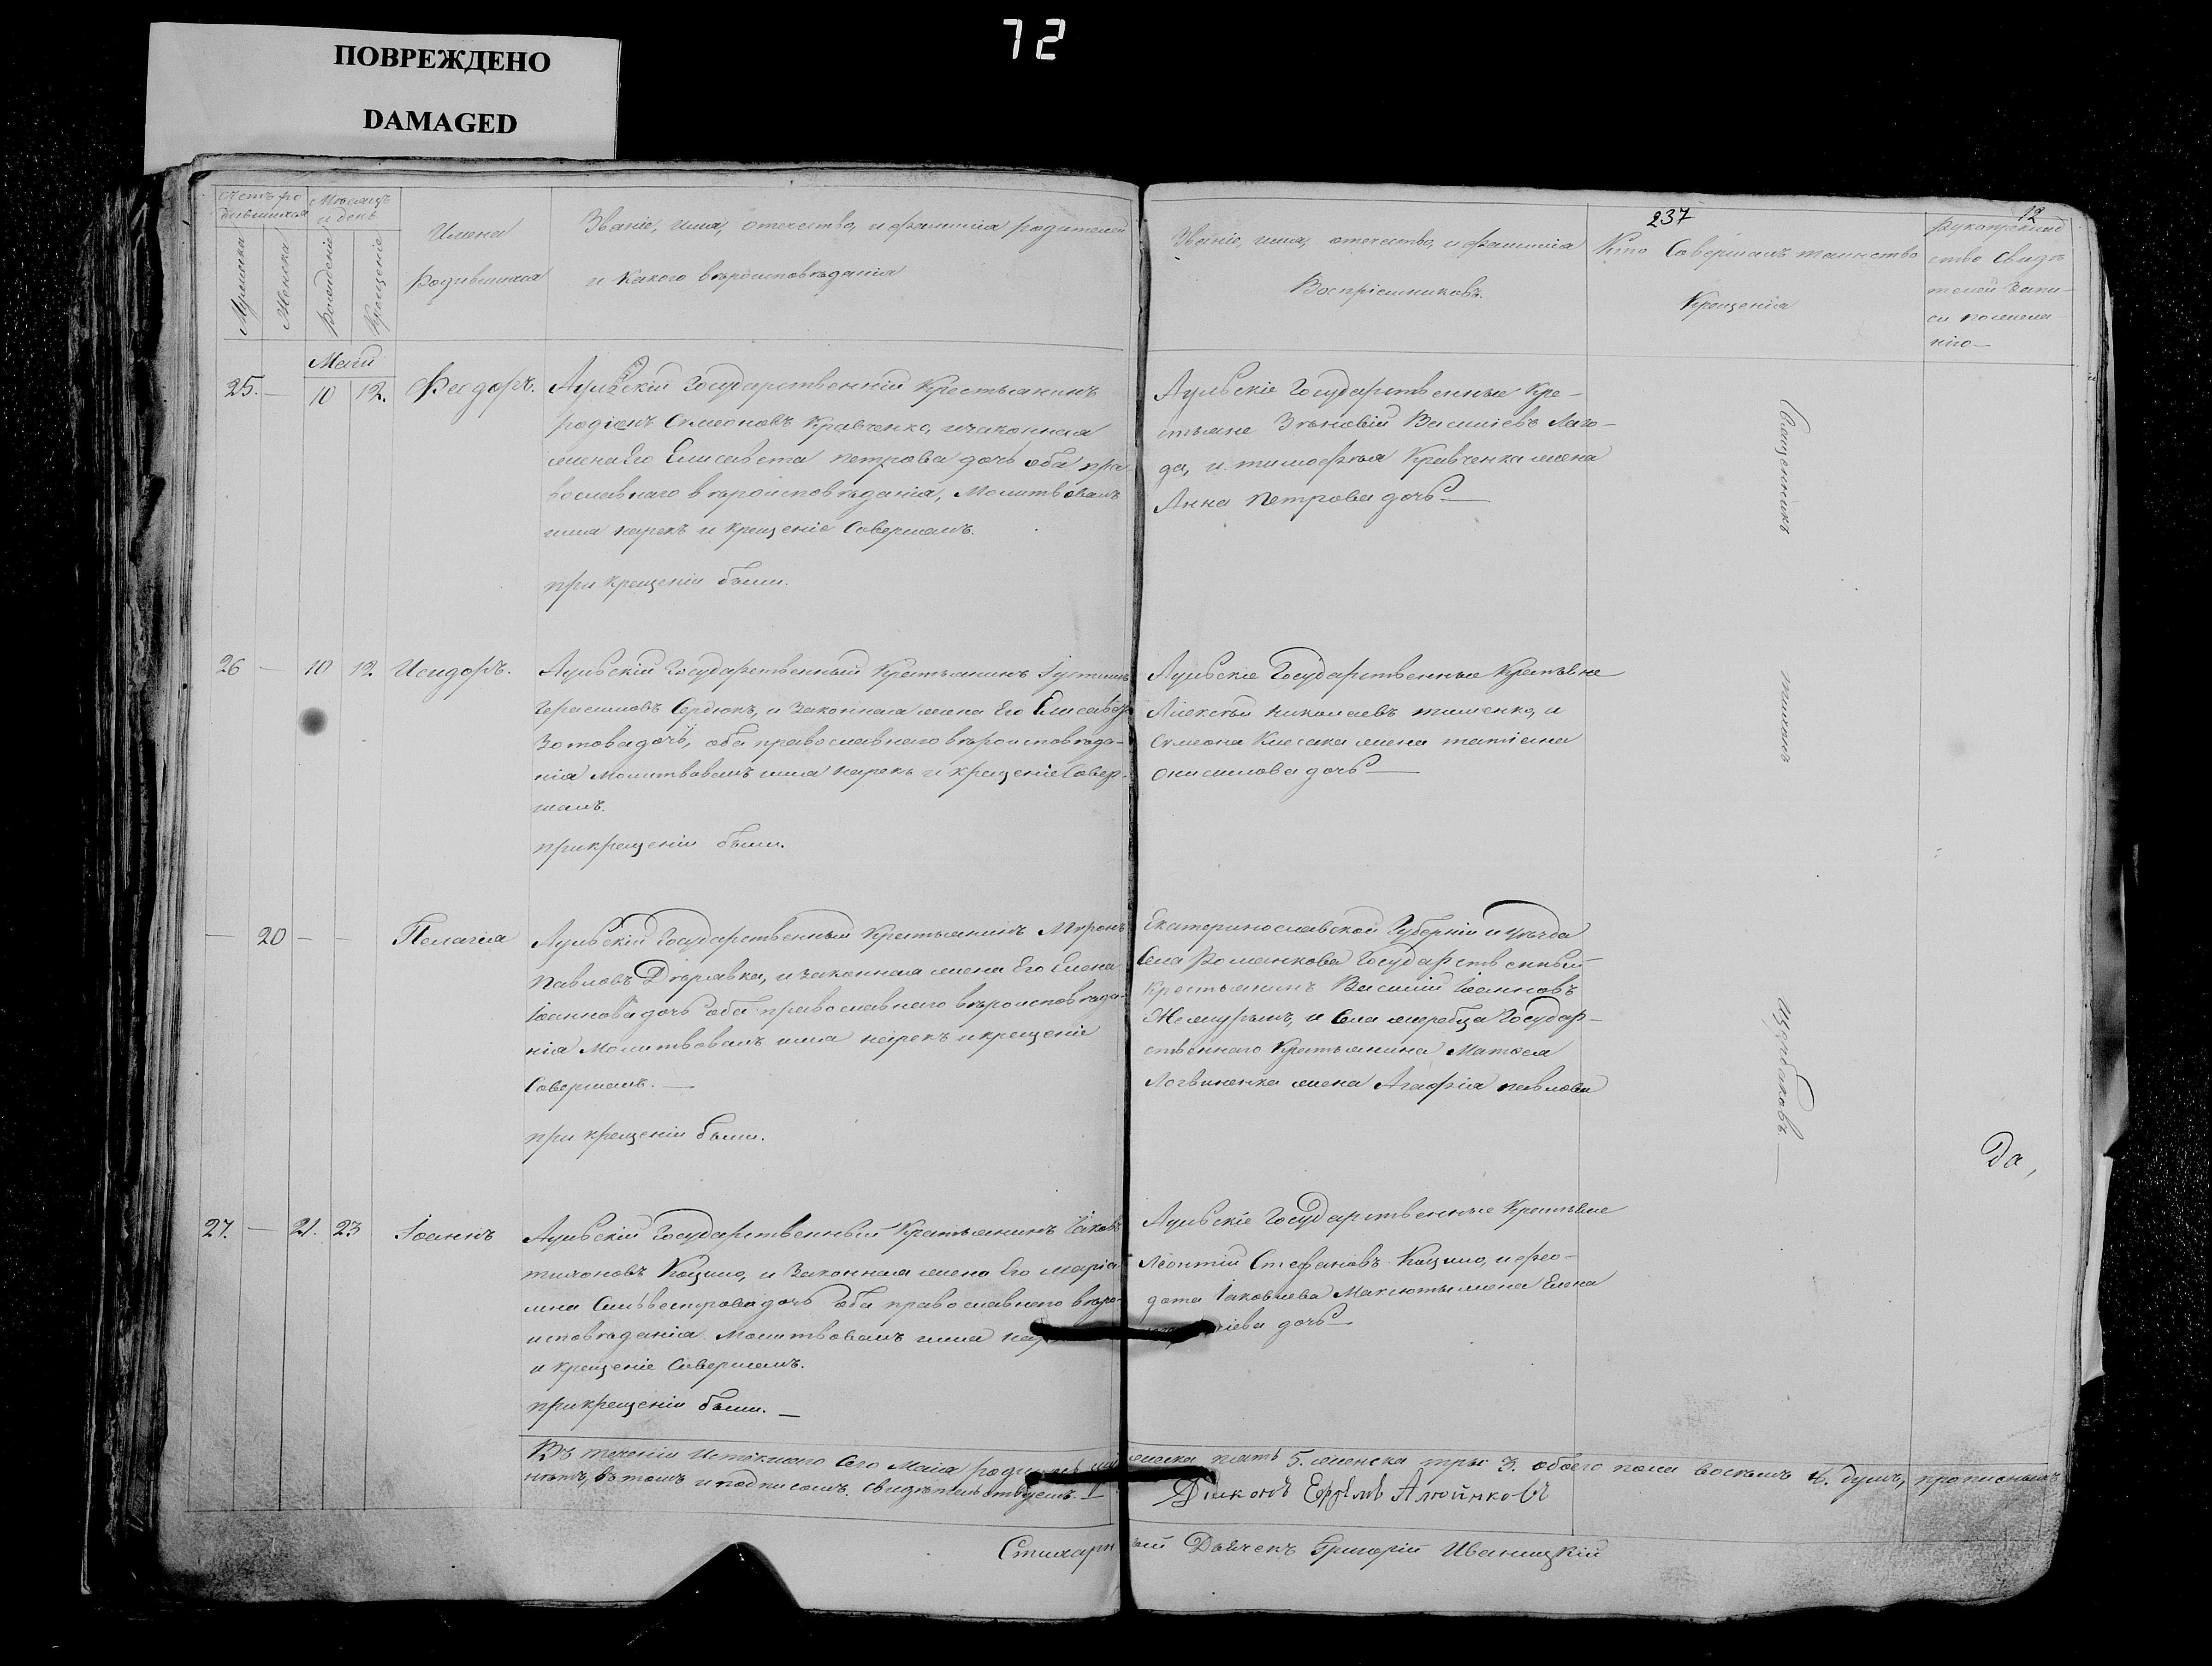 ПОВРЕЖДЕНО
DAMAGED
72
237
12
Счетъ ро
дившихся
Мѣсяцъ
и день
Мужска
Женска
Рожденіе
Крещеніе
Имена
Родившихся
Званіе, имя, отчество, и фамилія родителей
и Какого вѣроисповѣданія
Званіе, имя, отчество, и фамилія
Воспріемниковъ.
Кто Совершалъ таинство
Крещенія
Рукоприклад
ство Свидѣ
телей Запи-
си по желанію
Маій
25. — 10 12. Феодоръ.
Аульскій Государственній Крестьянинъ
Родіонъ Симеоновъ Кравченко, изаконная
женаЕго Елисавета петрова дочь оба пра-
вославнаго вѣроисповѣданія, Молитвовалъ
имя нарекъ и крещеніе Совершалъ.
при крещеніи были.
Аульскіе Государственные Кре-
стьяне Зѣновій Василіевъ Лаго-
да, и тимофѣя Кравченка жена
Анна Петрова дочь —
26 — 10 12 Исидоръ.
Аульскій Государственный Крестьянинъ Іустинъ
Герасимовъ Сердюкъ, и Законная жена Его Елисавета
Зотовадочь, оба православнаго вѣроисповѣда-
нія Молитвовалъ имя нарекъ и крещеніе Совер-
шалъ.
прикрещеніи были.
Аульскіе Государственные Крестьяне
Алексѣй Николаевъ тименко, и
Симеона Кисака жена татіана
Онисимова дочь —
— 20 — — Пелагія
Аульскій Государственный Крестьянинъ Миронъ
Павловъ Дѣрявка, изаконная жена Его Елена
Іоаннова дочь оба православнаго вѣроисповѣда-
нія Молитвовалъ имя нарекъ икрещеніе
Совершалъ. —
при крещеніи были.
Екатеринославской Губерніи иуѣзда
Села Романкова Государственный
Крестьянинъ Василій Іоанновъ
и Села жеребца Государ-
ственнаго Крестьянина Матѳея
Логвиненка жена Агафія павлова
27. — 21. 23 Іоаннъ
Аульскій Государственный Крестьянинъ Іаковъ
тихоновъ Кацыло, и Законная жена Его марія
Сильвестровадочь оба православнаго вѣро-
исповѣданія Молитвовалъ имя
и крещеніе Совершалъ.
прикрещеніи были. —
Аульскіе Государственные Крестьяне
Леонтій Стефановъ Кацыло, и Фео-
дота Іаковлева Максюты жена Елена
дочь —
Священникъ
тихонъ
Щербаковъ. —
Да,
Въ теченіи Истекшаго Сего Маія родилось мужска пять 5. женска три 3. обоего пола восемь 8. душъ, прописныхъ
нѣтъ, въ томъ и подписомъ свидѣтельствуемъ. —
Діаконъ
Стихарный Дьячекъ Григорій Иваницкій